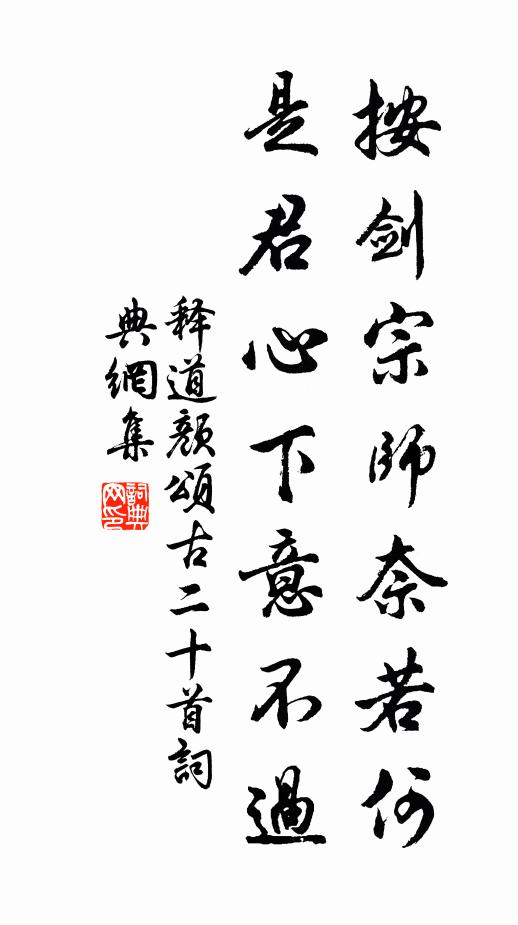 按剑宗師奈若何
是君心下意不過
释道颜頌古二十首詞
典網集
詞典网印